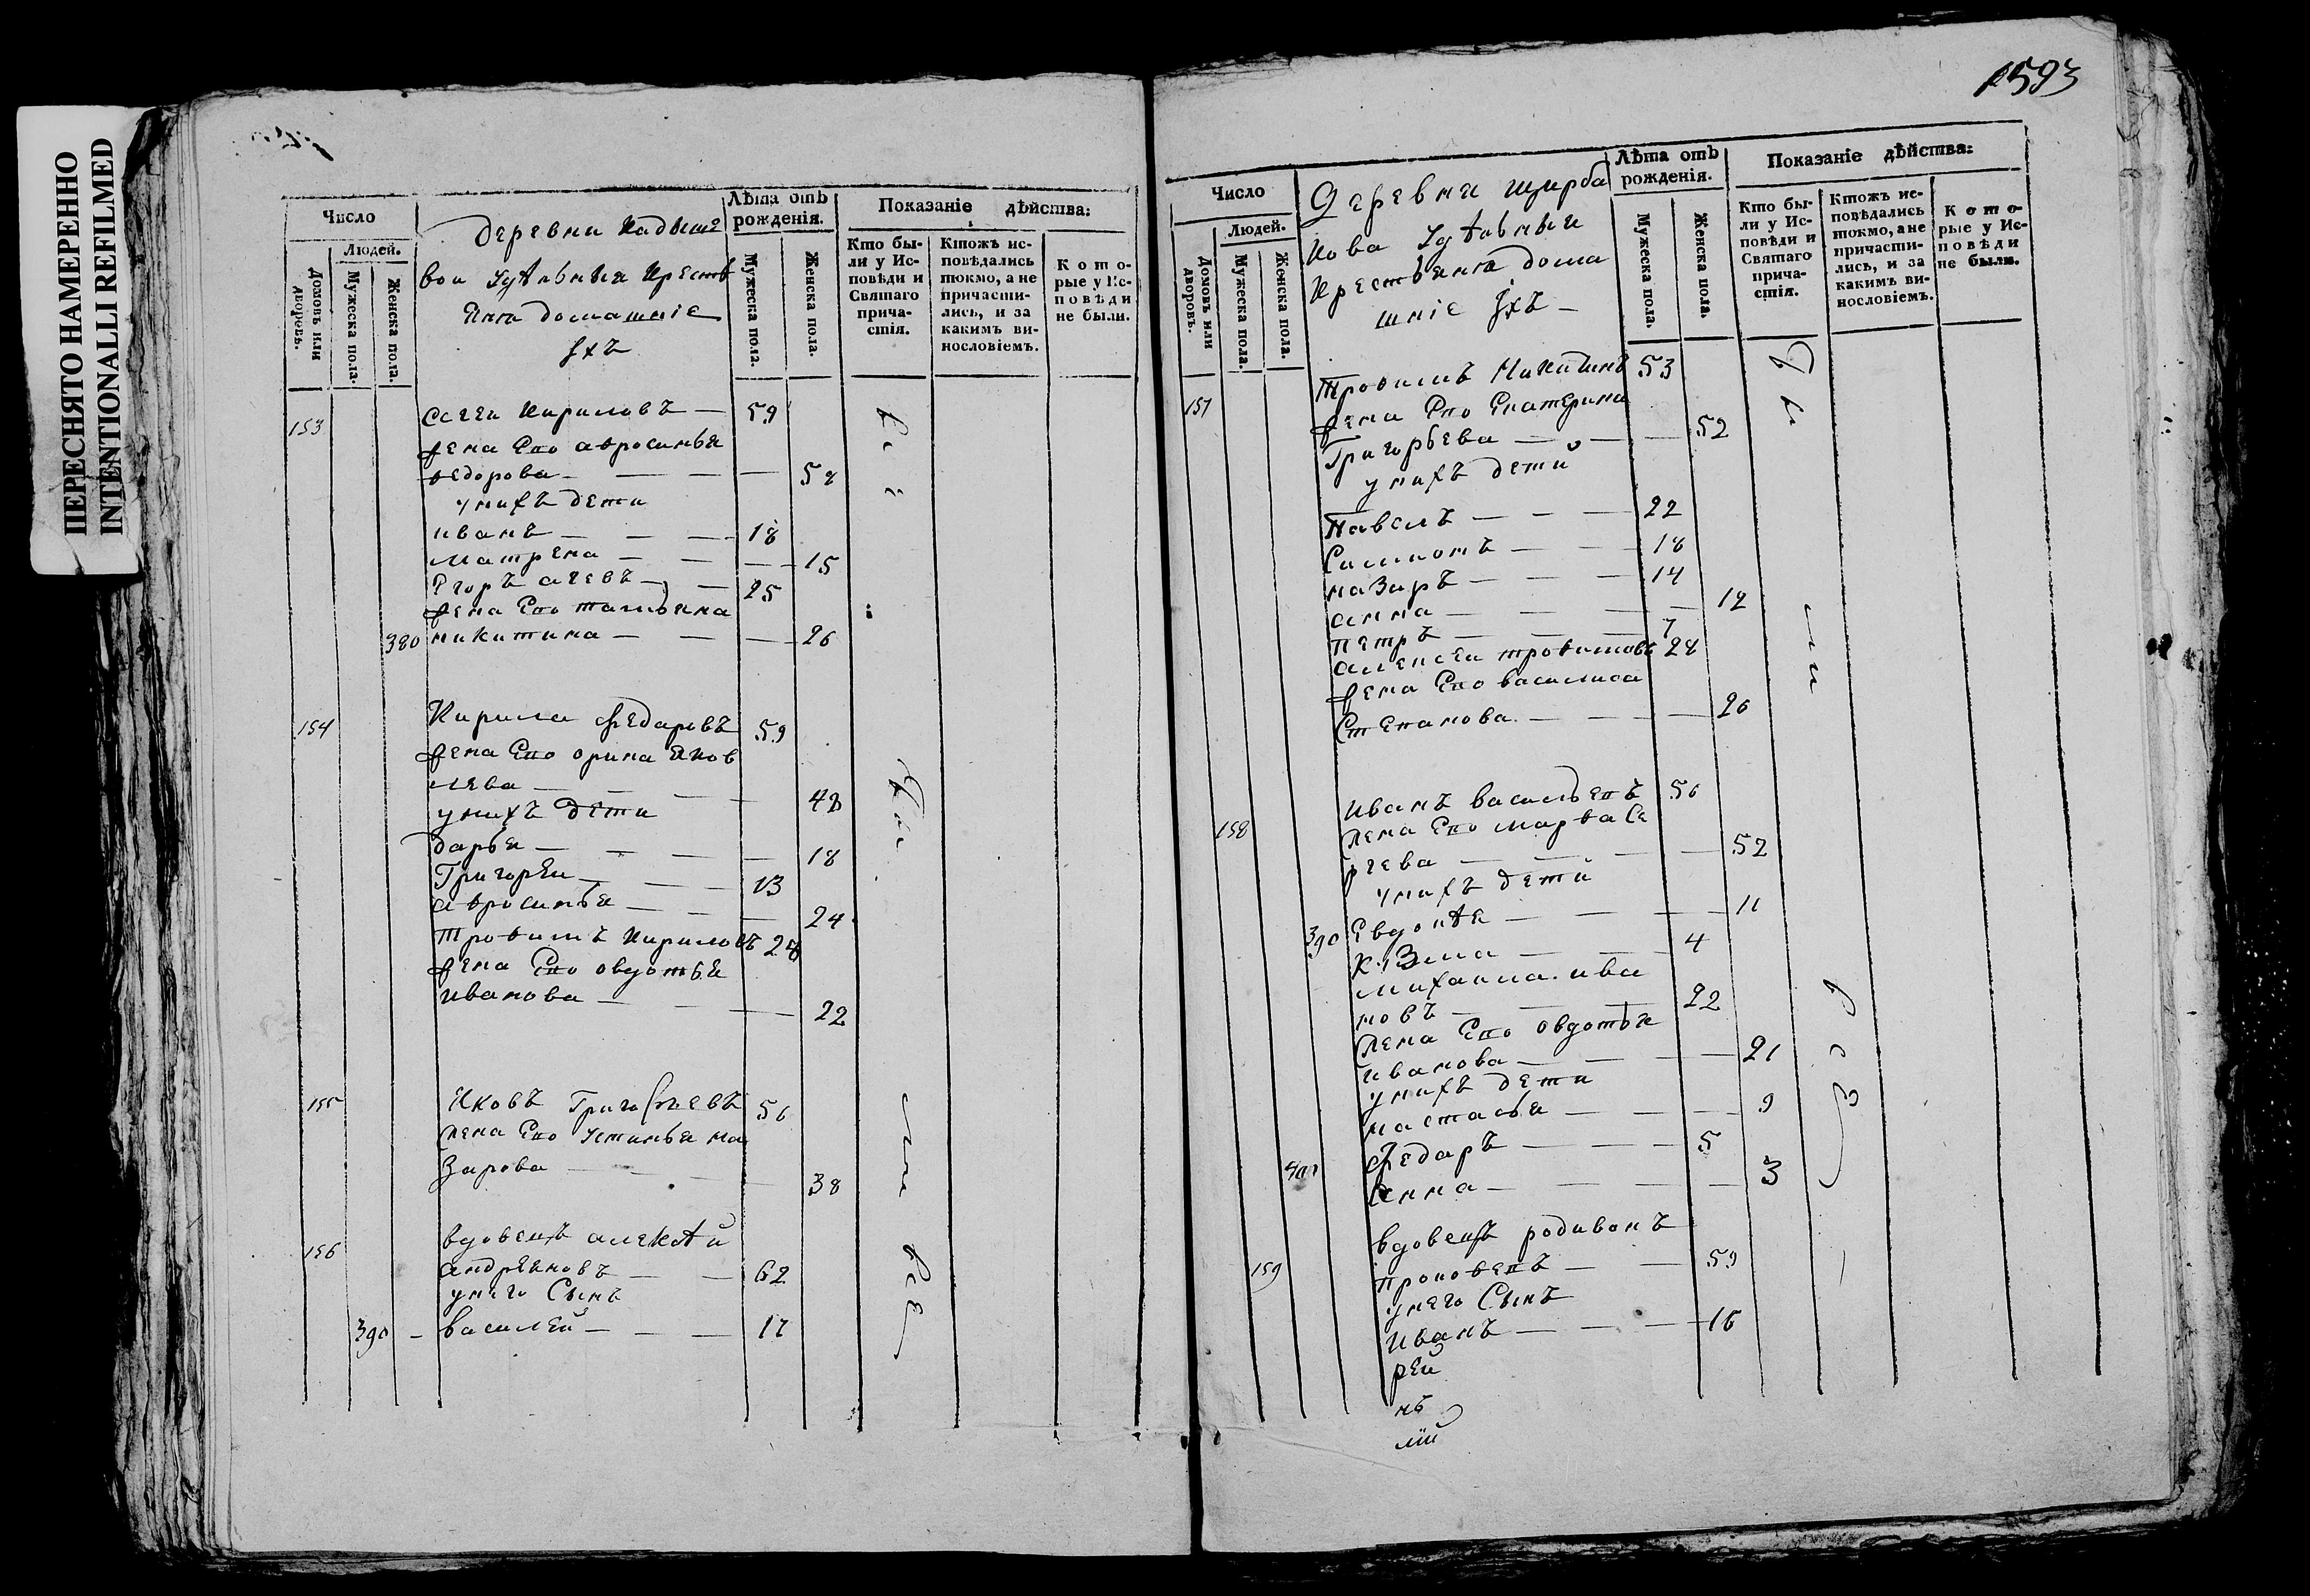 ПЕРЕСНЯТО НАМЕРЕННО
INTENTIONALLI REFILMED
Число
Людей.
Домовъ или дворовъ.
Мужеска пола.
Женска пола.
деревни
вои удѣльныя крестъ
яня домашніе
ихъ
Лѣта отъ
рожденія.
Мужеска пола.
Женска пола.
Показаніе дѣйства:
Кто бы-
ли у Ис-
повѣди и
Святаго
прича-
стія.
Ктожъ ис-
повѣдались
токмо, а не
причасти-
лись, и за
какимъ ви-
нословіемъ.
К о т о-
рые у Ис-
п о в ѣ д и
не были.
153 Кириловъ — 59
жена его авросинья
ѳедорова — — — 58
у нихъ дети
иванъ — — — 18
матрена — — — 15
Егоръ — — 25
жена его татьяна
380 никитина — — — 26
154 Кирила Федаровъ 59
жена его орина яков
лева — — — 48
у нихъ дети
дарья — — — — 18
Григореи — — — 13
авросинья — — — 24
троѳимъ Кириловъ 28
жена его овдотья
иванова — — — 22
155 яковъ Григорьевъ 56
жена его Устинья на
зарова — — — 38
156 вдовецъ алексѣй
андрѣяновъ — — 62
у него Сынъ
390 — василей — — — 17
1593
Число
Людей.
Домовъ или дворовъ.
Мужеска пола.
Женска пола.
Деревни щерба
кова удѣльныи
крестьяня дома
шніе ихъ —
Лѣта отъ
рожденія.
Мужеска пола.
Женска пола.
Показаніе дѣйства:
Кто бы-
ли у Ис-
повѣди и
Святаго
прича-
стія.
Ктожъ ис-
повѣдались
токмо, а не
причасти-
лись, и за
какимъ ви-
нословіемъ.
К о т о-
рые у Ис-
п о в ѣ д и
не были.
157 Троѳимъ Никитинъ 53
жена его Екатерина
Григорьева — — — 52
у нихъ дети
Павелъ — — — 22
Симионъ — — — 18
назаръ — — — 14
анна — — — — 12
петръ — — — 7
алексеи троѳимовъ 28
жена его василиса
Степанова — — — 26
158 иванъ васильевъ 56
жена его марѳа Се
ргева — — — — 52
у нихъ дети
390 Евдокѣя — — — — 11
кузма — — — 4
михаила ива
новъ — — — 22
жена его овдотья
иванова — — — 21
у нихъ дети
настасья — — — 9
Федаръ — — — 5
400 анна — — — — 3
159 вдовецъ родивонъ
прокоѳевъ — — 59
у него Сынъ
иванъ — — — 16
рей
нъ
лій